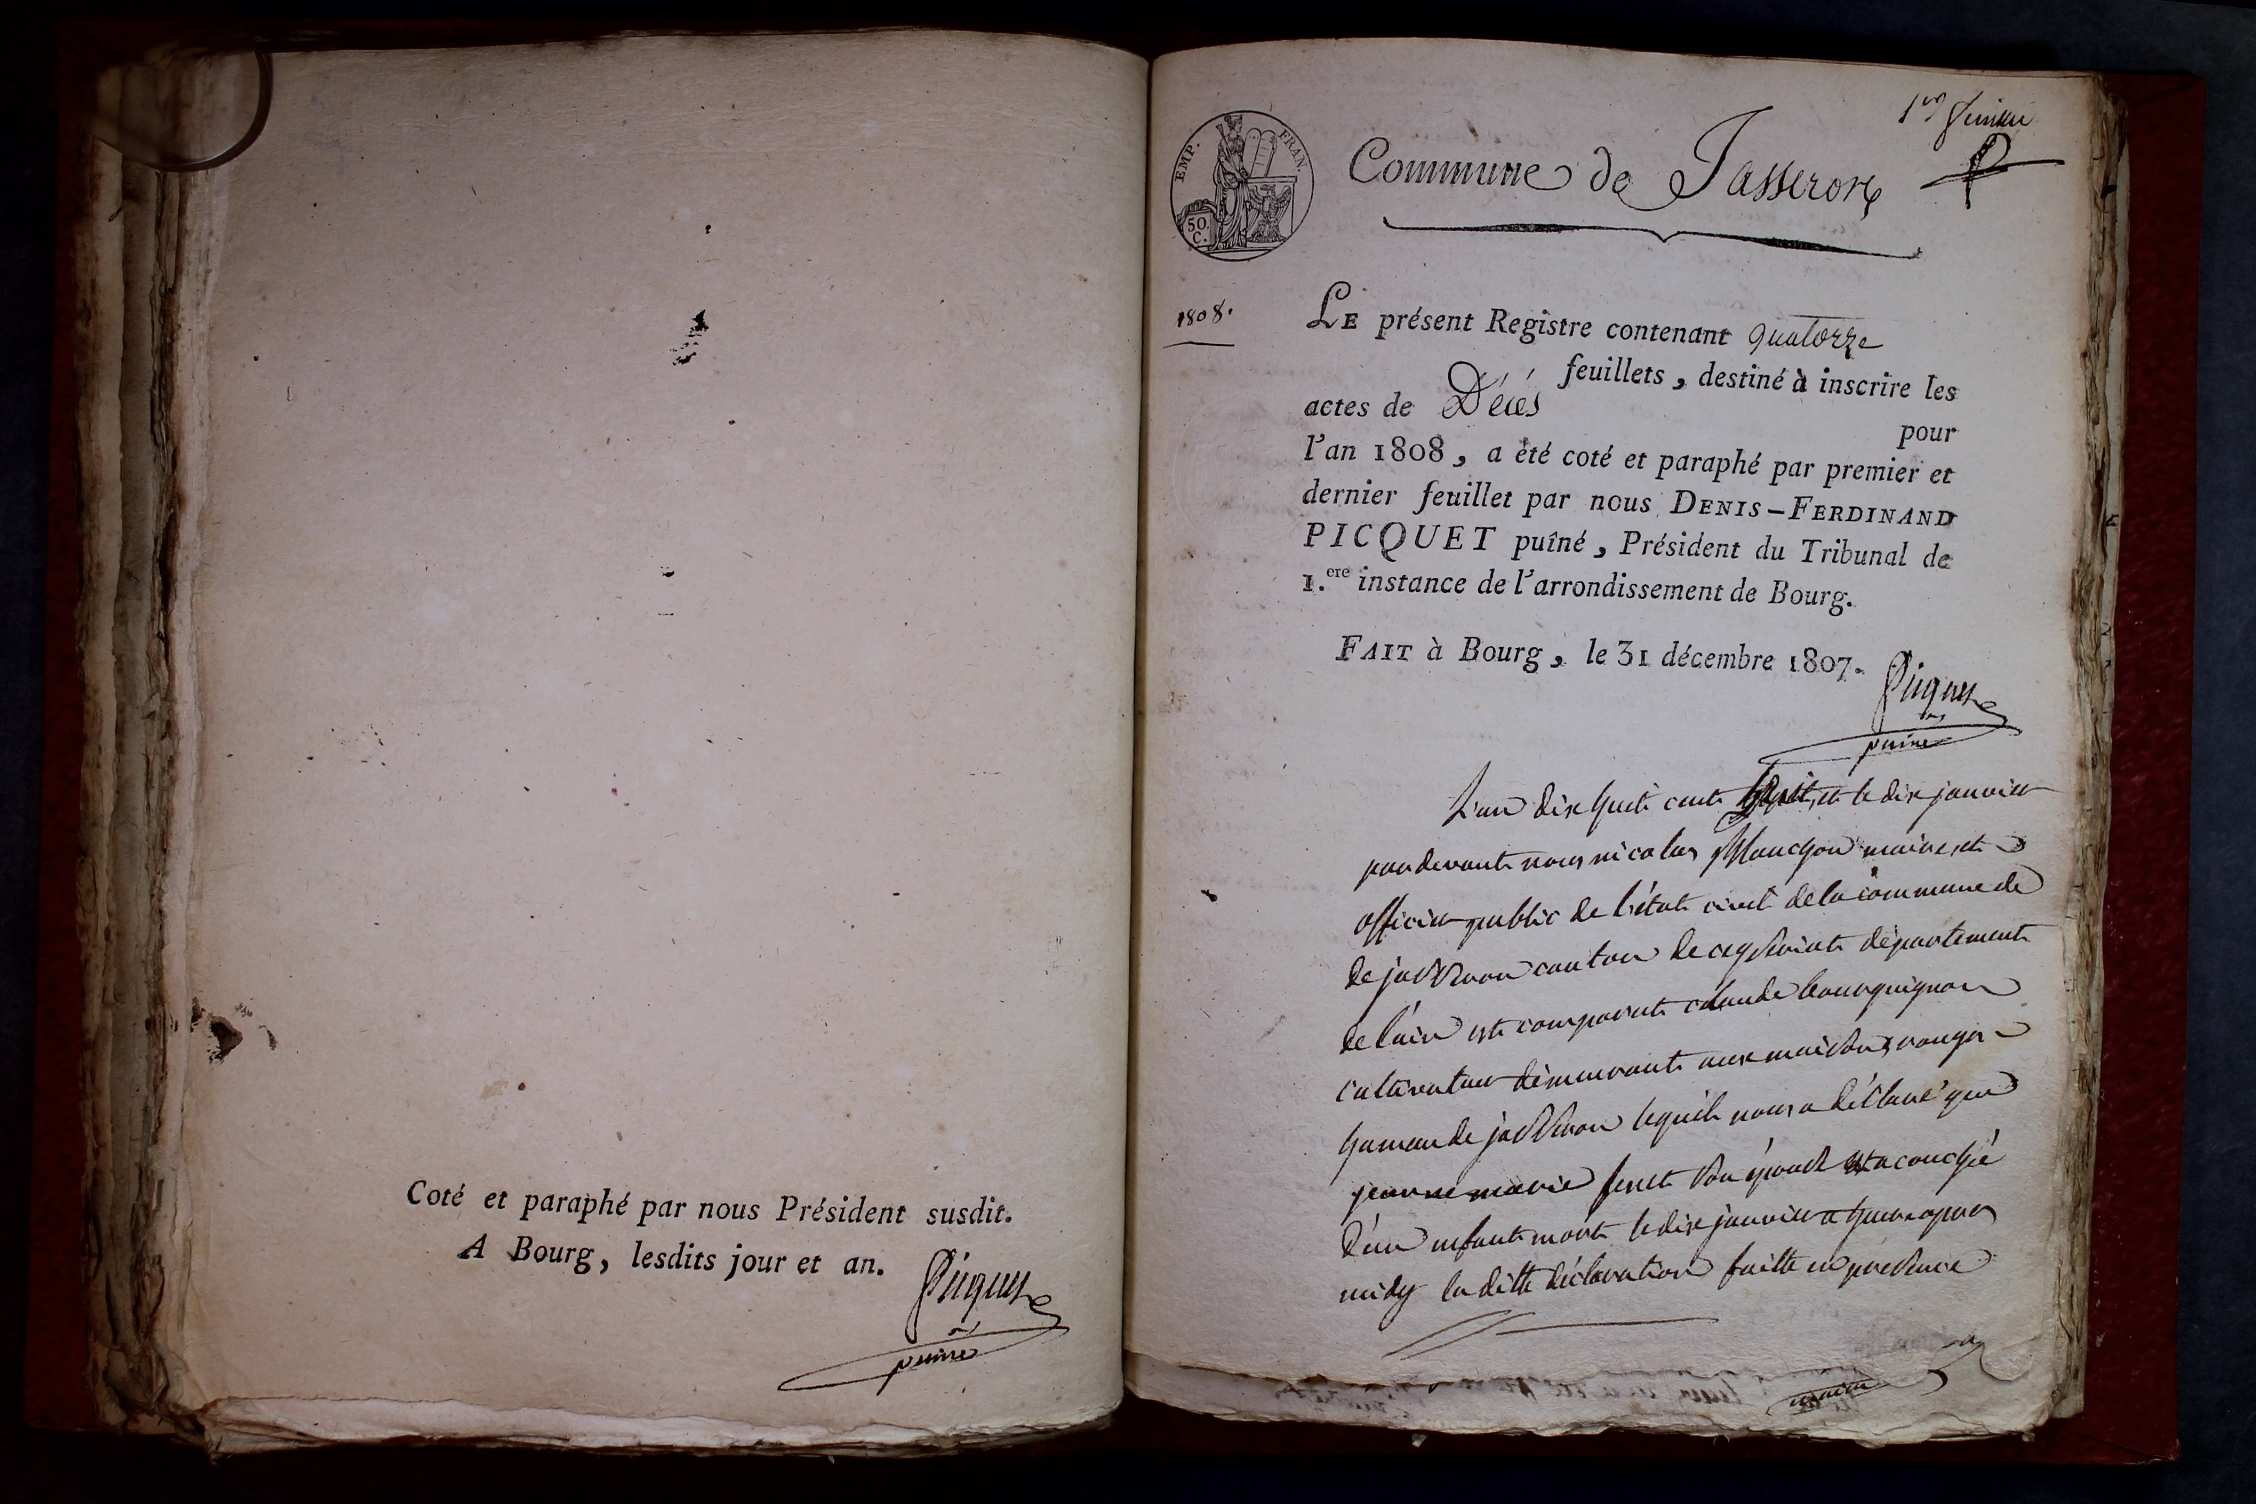 Coté et paraphé par nous Président susdit.
A Bourg, lesdits jour et an.
Picquet
puiné
1er feuillet
EMP. FRAN.
50
C.
Commune de Jasseron
1808.
LE présent Registre contenant quatorze
feuillets, destiné à inscrire les
actes de Décès
pour
l'an 1808, a été coté et paraphé par premier et
dernier feuillet par nous DENIS-FERDINAND
PICQUET puîné, Président du Tribunal de
1.ere instance de l'arrondissement de Bourg.
FAIT à Bourg, le 31 décembre 1807.
Picquet
puiné
L'an dix huit cent huit et le dix janvier
pardevant nous nicolas maire et
officier public de l'état civil de la commune de
de jasseron canton de ceyseriat département
de l'ain est comparut claude bourguignon
cultivateur demeurant aux maisons rouges
hameau de jasseron lequel nous a déclaré que
jeanne marie son épouse est acouchée
d'un enfant mort le dix janvier a heures apres
midy la ditte déclaration faitte en présence